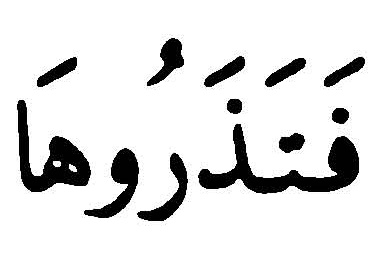 فَتَذَرُوهَا